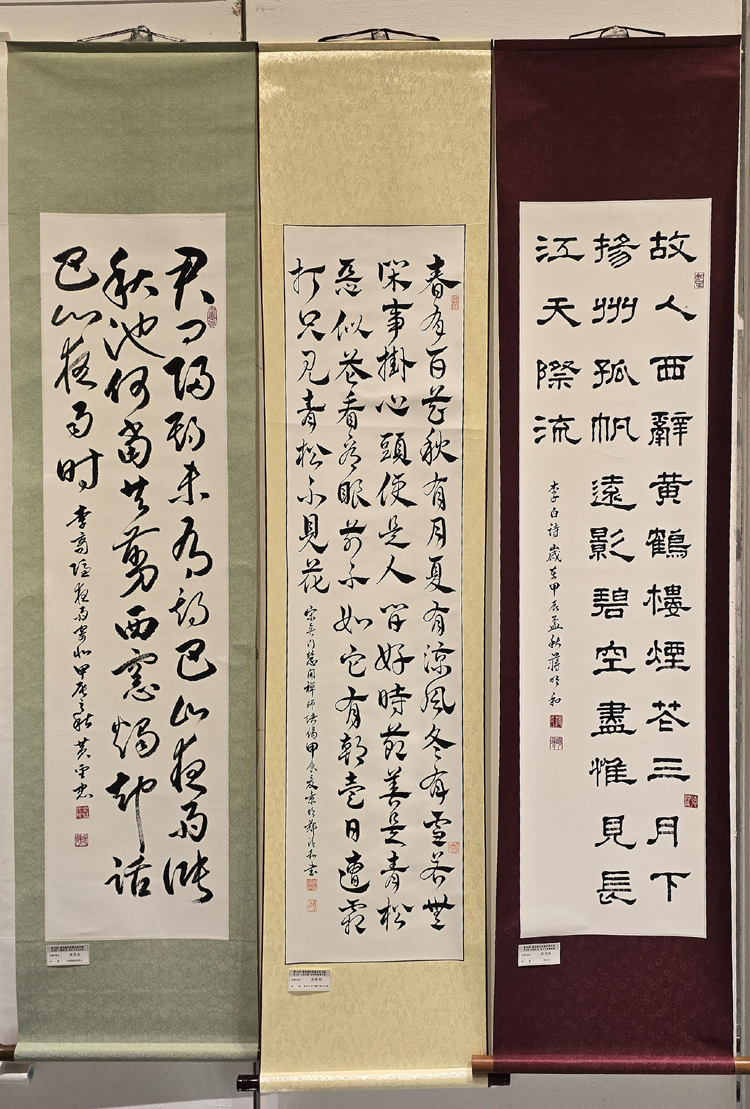 故人西辭黃鶴樓煙花三月下
揚州孤帆遠影碧空盡惟見長
江天際流
李白詩歲在甲辰孟秋
春有百花秋有月夏有涼風冬有雪若無
閑事掛心頭便是人間好時節善是青松
惡似花看看眼前不如它有朝壹日遭霜
打只見青松不見花
宋無門慧開禪師語偈甲辰夏
君问歸期未有期巴山夜雨涨
秋池何當共剪西窓燭却話
巴山夜雨时
李商隐夜雨寄北甲辰之秋